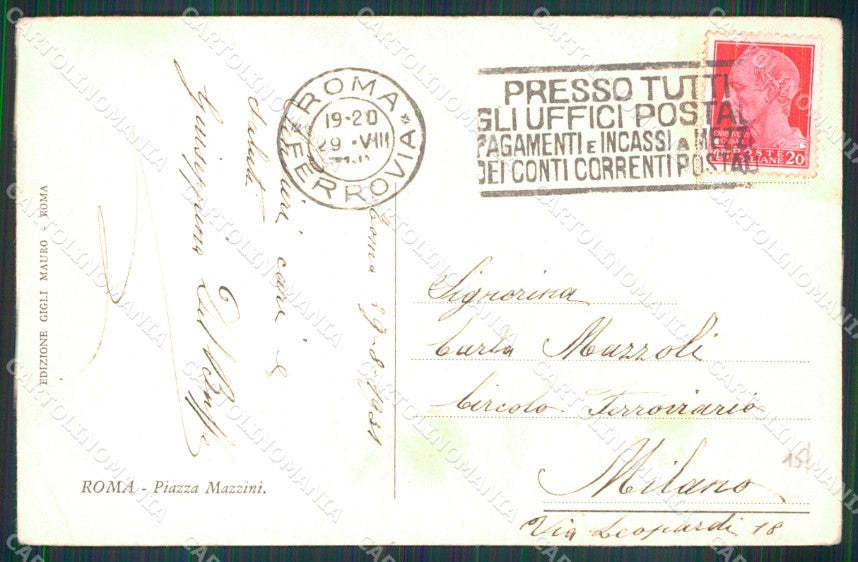 ROMA
19-20
29 VIII
FERROVIA
PRESSO TUTTI
GLI UFFICI POSTAL
PAGAMENTI E INCASSI A MEZZ
DEI CONTI CORRENTI POSTALI
POSTE
ITALIANE 20
Roma 29-8-1931
cari e
saluti
Giuseppina
Signorina
Carla Mazzoli
Circolo Ferroviario
Milano
Via Leopardi 18
ROMA - Piazza Mazzini.
EDIZIONE GIGLI MAURO - ROMA
CARTOLINOMANIA